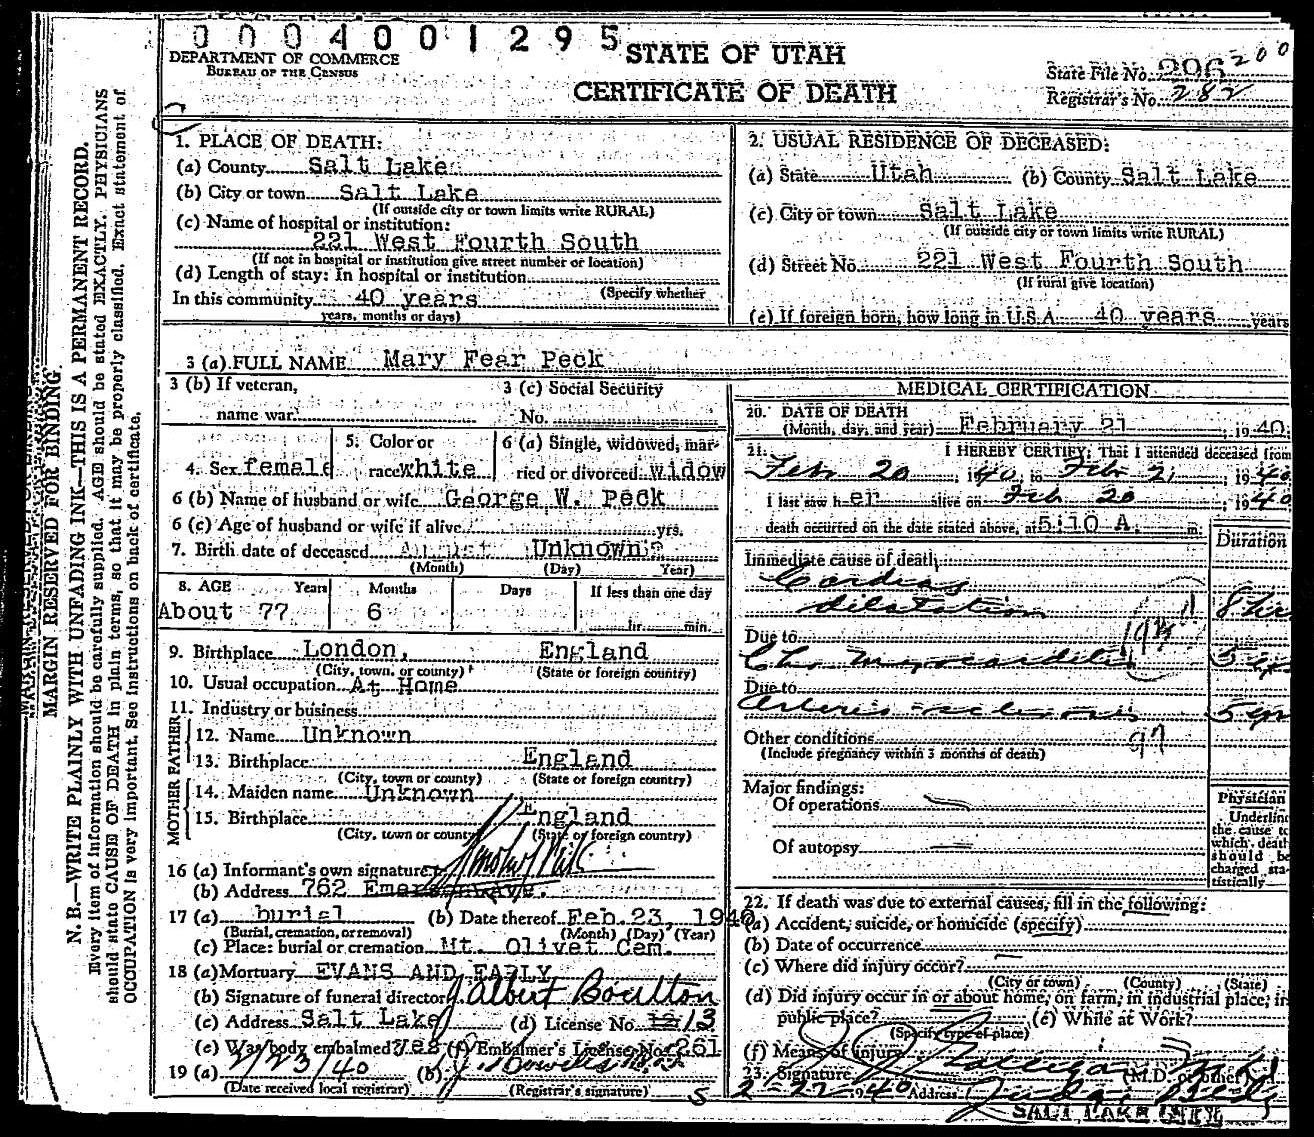 0004001295
DEPARTMENT OF COMMERCE
BUREAU OF THE CENSUS
STATE OF UTAH
CERTIFICATE OF DEATH
State File No. 296 200
Registrar's No. 282
MARGIN RESERVED FOR BINDING
N. B.—WRITE PLAINLY WITH UNFADING INK—THIS IS A PERMANENT RECORD.
Every item of information should be carefully supplied. AGE should be stated EXACTLY. PHYSICIANS
should state CAUSE OF DEATH in plain terms, so that it may be properly classified. Exact statement of
OCCUPATION is very important. See instructions on back of certificate.
1. PLACE OF DEATH:
(a) County Salt Lake
(b) City or town Salt Lake
(If outside city or town limits write RURAL)
(c) Name of hospital or institution:
221 West Fourth South
(If not in hospital or institution give street number or location)
(d) Length of stay: In hospital or institution
(Specify whether
In this community 40 years
years, months or days)
2. USUAL RESIDENCE OF DECEASED:
(a) State Utah (b) County Salt Lake
(c) City or town Salt Lake
(If outside city or town limits write RURAL)
(d) Street No. 221 West Fourth South
(If rural give location)
(e) If foreign born, how long in U.S.A. 40 years years
3 (a) FULL NAME Mary Fear Peck
3 (b) If veteran,
name war
3 (c) Social Security
No.
4. Sex female
5. Color or
race white
6 (a) Single, widowed, mar-
ried or divorced widow
6 (b) Name of husband or wife George W. Peck
6 (c) Age of husband or wife if alive yrs.
7. Birth date of deceased August Unknown ?
(Month) (Day) Year)
8. AGE Years Months Days If less than one day
About 77 6
hr. min.
9. Birthplace London, England
(City, town, or county) (State or foreign country)
10. Usual occupation At Home
11. Industry or business
FATHER
12. Name Unknown
13. Birthplace England
(City, town or county) (State or foreign country)
MOTHER
14. Maiden name Unknown
15. Birthplace England
(City, town or county (State or foreign country)
16 (a) Informant's own signature
(b) Address 762 Emerson Ave.
17 (a) burial (b) Date thereof Feb.23, 1940
(Burial, cremation, or removal) (Month) (Day) (Year)
(c) Place: burial or cremation Mt. Olivet Cem.
18 (a) Mortuary EVANS AND EARLY
(b) Signature of funeral director J. Albert Boulton
(c) Address Salt Lake (d) License No. 12 13
(e) Was body embalmed? Yes (f) Embalmer's License No. 261
19 (a) 2/23/40 (b)
(Date received local registrar) (Registrar's signature)
MEDICAL CERTIFICATION
20. DATE OF DEATH
(Month, day, and year) February 21, 1940.
21. I HEREBY CERTIFY, That I attended deceased from
Feb 20, 1940, to Feb 21, 1940
I last saw her alive on Feb 20, 1940
death occurred on the date stated above, at 5:10 A. m.
Duration
Immediate cause of death
Cardiac
dilatation 8 hrs
Due to
Chr. myocarditis 5 yrs
Due to
Arterio-sclerosis 5 yrs
Other conditions 97
(Include pregnancy within 3 months of death)
Major findings:
Of operations
Of autopsy
Physician
Underline
the cause to
which death
should be
charged sta-
tistically
22. If death was due to external causes, fill in the following:
(a) Accident, suicide, or homicide (specify)
(b) Date of occurrence
(c) Where did injury occur?
(City or town) (County) (State)
(d) Did injury occur in or about home, on farm, in industrial place, in
public place? (e) While at Work?
(Specify type of place)
(f) Means of injury
23. Signature (M.D. or other)
2-22-1940 Address Judge Bldg
SALT LAKE CITY
5